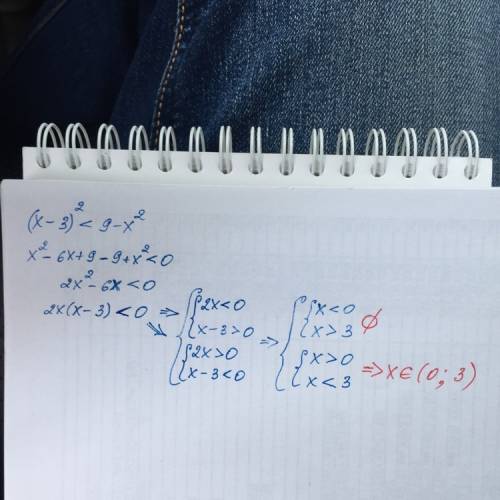 (x-3)² < 9-x²
x²-6x+9-9+x²<0
2x²-6x<0
2x(x-3)<0 ⇒ { { 2x<0 ⇒ { { x<0
x-3>0 x>3 ∅
{ 2x>0 { x>0
x-3<0 x<3 ⇒ x∈(0; 3)